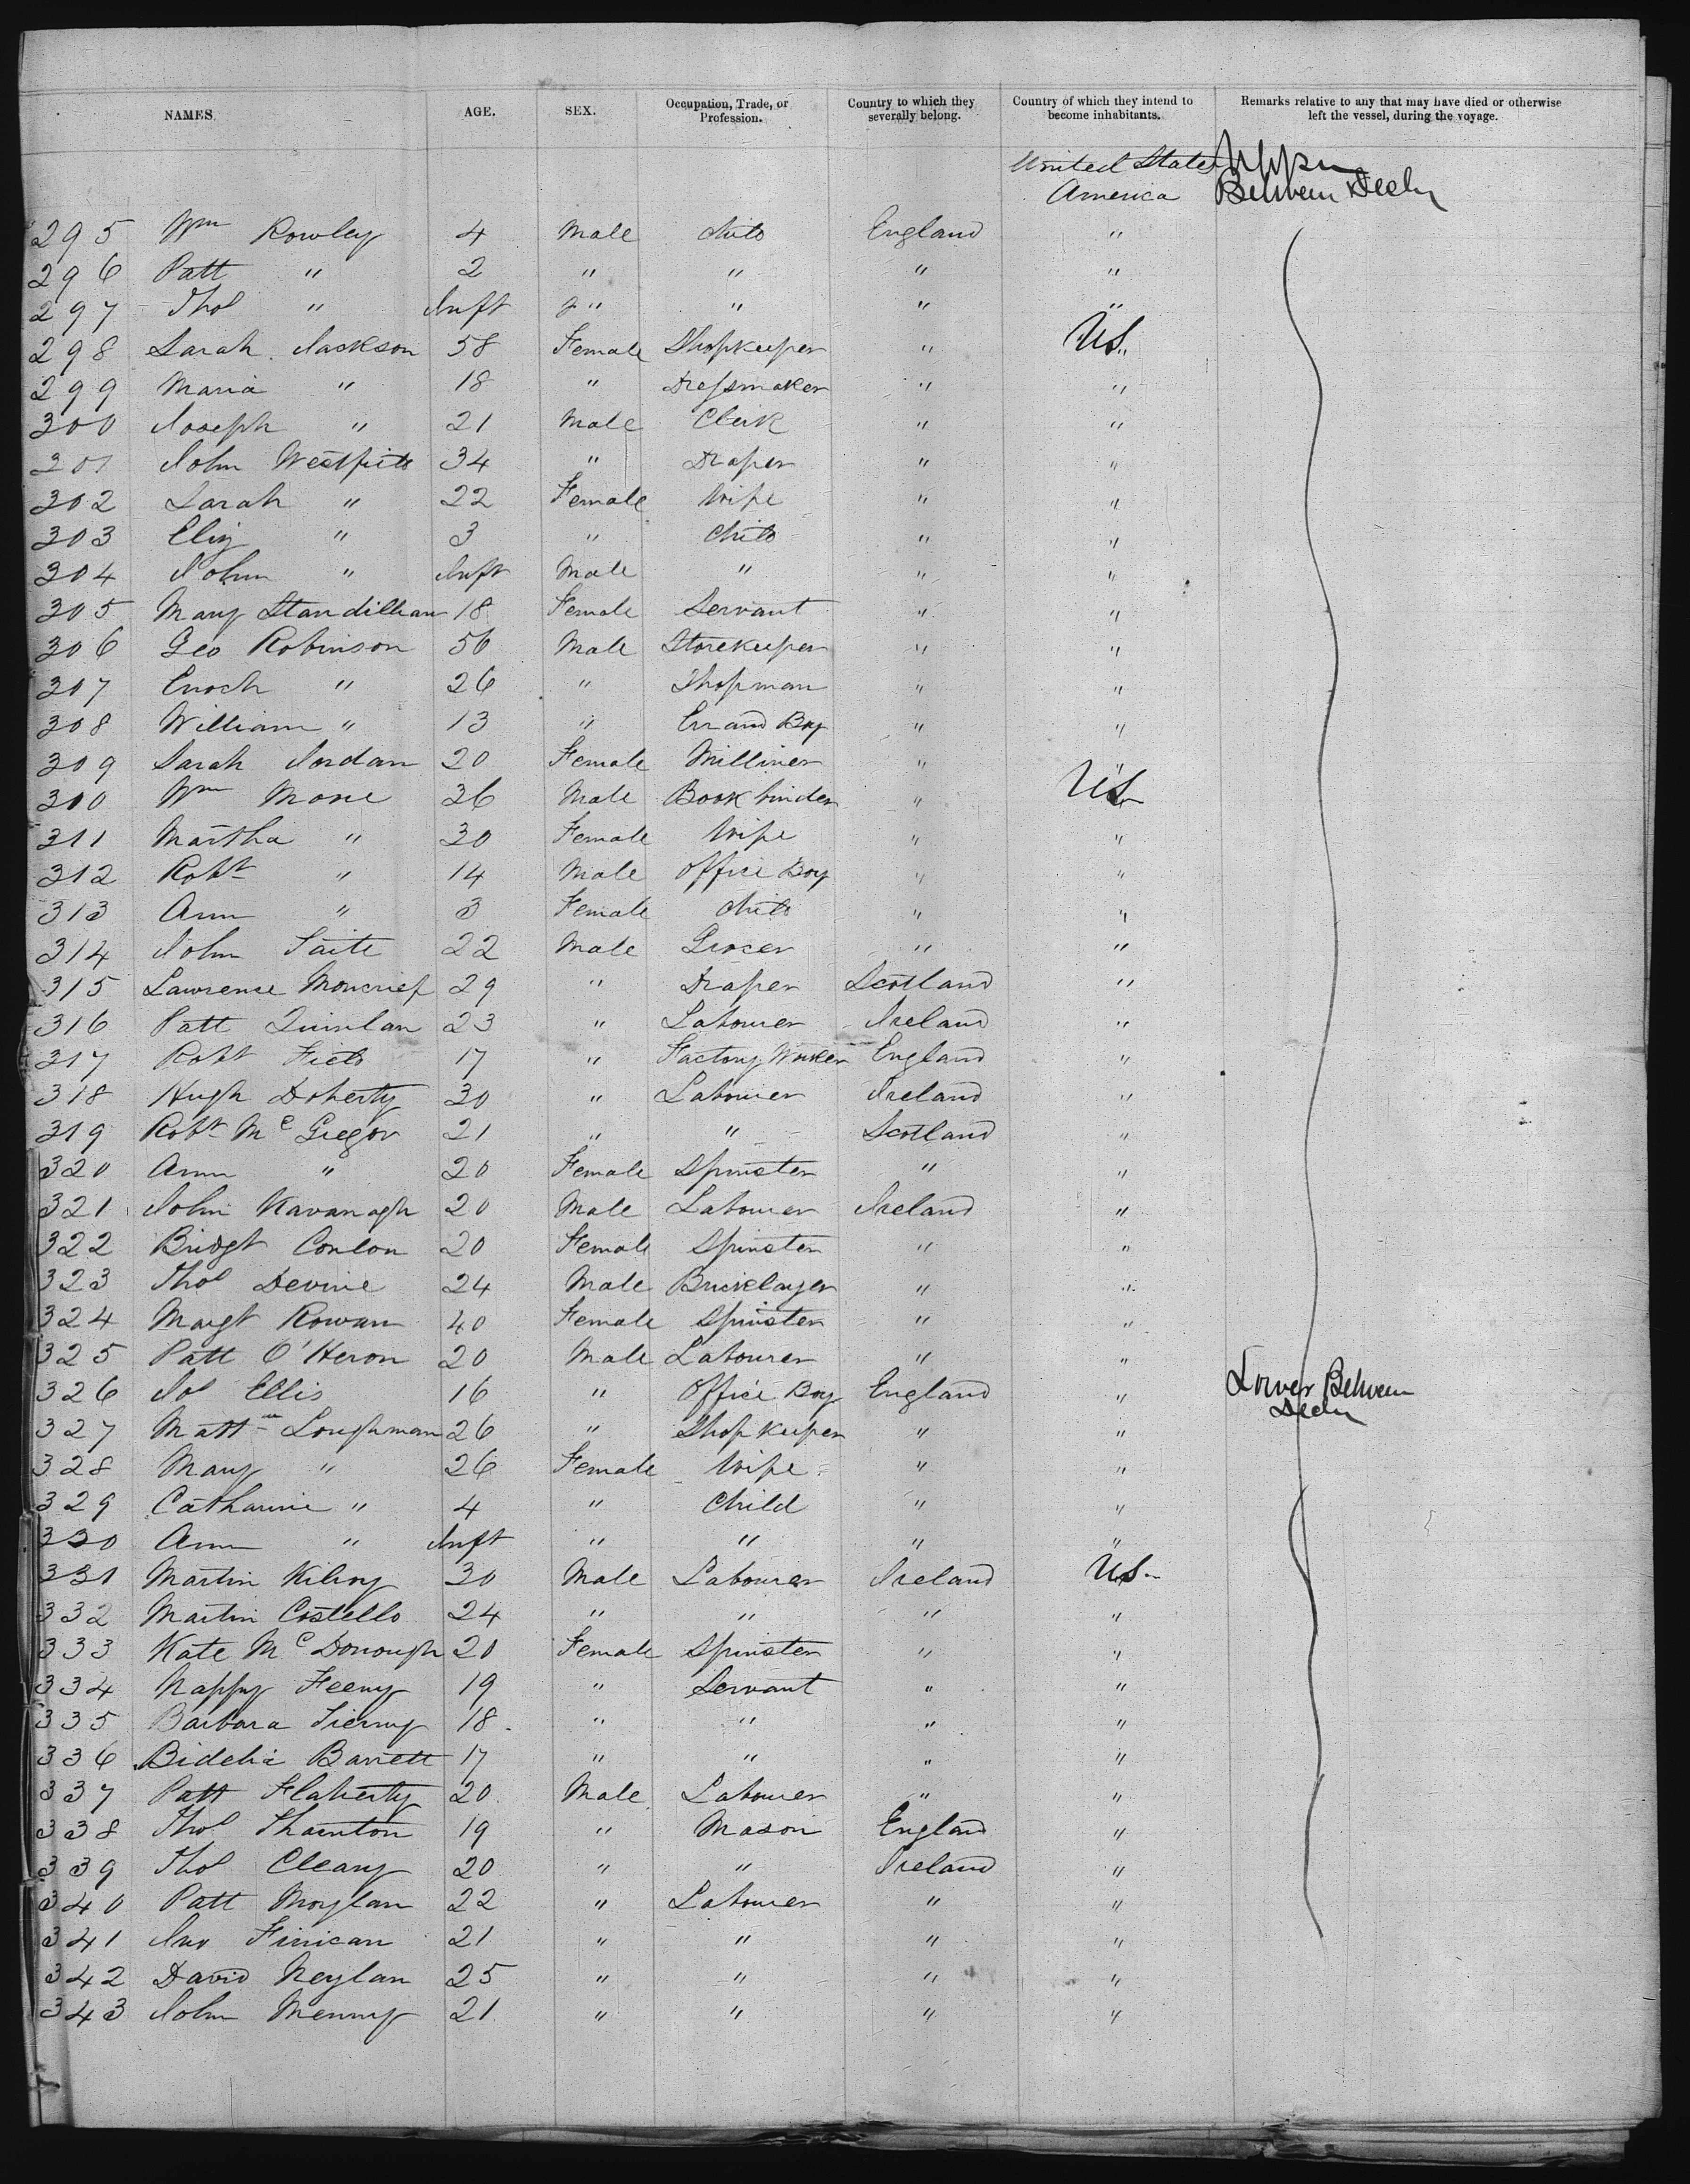 NAMES. AGE. SEX. Occupation, Trade, or Profession. Country to which they severally belong. Country of which they intend to become inhabitants. Remarks relative to any that may have died or otherwise left the vessel, during the voyage.
United States Upper
America Between Decks
295 Wm Rowley 4 Male Child England "
296 Patt " 2 " " " "
297 Thos " Inft " " " "
298 Sarah Jackson 58 Female Shopkeeper " U.S.
299 Maria " 18 " Dressmaker " "
300 Joseph " 21 Male Clerk " "
301 John 34 " Draper " "
302 Sarah " 22 Female Wife " "
303 Eliz " 3 " Child " "
304 John " Inft Male " " "
305 Mary 18 Female Servant " "
306 Geo Robinson 56 Male Storekeeper " "
307 Enoch " 26 " Shopman " "
308 William " 13 " Errand Boy " "
309 Sarah Jordan 20 Female Milliner " "
300 Wm More 36 Male Book binder " U.S.
311 Martha " 30 Female Wife " "
312 Robt " 14 Male Office Boy " "
313 Ann " 3 Female Child " "
314 John 22 Male Grocer " "
315 Lawrence Moncrief 29 " Draper Scotland "
316 Patt Quinlan 23 " Labourer Ireland "
317 Robt Field 17 " Factory Worker England "
318 Hugh Doherty 30 " Labourer Ireland "
319 Robt McGregor 21 " " Scotland "
320 Ann " 20 Female Spinster " "
321 John Kavanagh 20 Male Labourer Ireland "
322 Bridgt Conlon 20 Female Spinster " "
323 Thos Devine 24 Male Bricklayer " "
324 Margt Rowan 40 Female Spinster " "
325 Patt O'Heron 20 Male Labourer " "
326 Jos Ellis 16 " Office Boy England " Lower Between
Decks
327 Mattw Loughman 26 " Shop keeper " "
328 Mary " 26 Female Wife " "
329 Catharine " 4 " Child " "
330 Ann " Inft " " " "
331 Martin 30 Male Labourer Ireland U.S.
332 Martin Costello 24 " " " "
333 Kate McDonough 20 Female Spinster " "
334 Nappy Feeny 19 " Servant " "
335 Barbara Tierny 18 " " " "
336 Bidelia Barrett 17 " " " "
337 Patt Flaherty 20 Male Labourer " "
338 Thos Thornton 19 " Mason England "
339 Thos Cleary 20 " " Ireland "
340 Patt Moylan 22 " Labourer " "
341 Jno Finican 21 " " " "
342 David Neylan 25 " " " "
343 John 21 " " " "